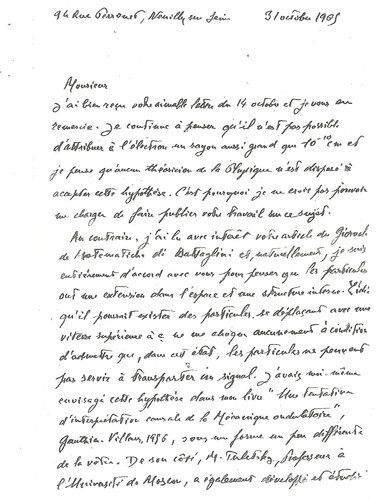 94 Rue Perronet, Neuilly sur Seine 31 octobre 1965
Monsieur
J'ai bien reçu votre aimable lettre du 14 octobre et je vous en
remercie. Je continue à penser qu'il n'est pas possible
d'attribuer à l'électron un rayon aussi grand que 10⁻¹⁰ cm et
je pense qu'aucun théoricien de la Physique n'est disposé à
accepter cette hypothèse. C'est pourquoi je ne crois pas pouvoir
me charger de faire publier votre travail sur ce sujet.
Au contraire, j'ai lu avec intérêt votre article du Giornale
de Matematiche di Battaglini et, naturellement, je suis
entièrement d'accord avec vous pour penser que les particules
ont une extension dans l'espace et une structure interne. L'idée
qu'il pourrait exister des particules, se déplaçant avec une
vitesse supérieure à c ne me choque aucunement à condition
d'admettre que, dans cet état, les particules ne peuvent
pas servir à transporter un signal. J'avais moi-même
envisagé cette hypothèse dans mon livre "Une tentative
d'interprétation causale de la Mécanique ondulatoire",
Gauthier-Villars, 1956, sous une forme un peu différente
de la vôtre. De son côté, M. Terletsky, Professeur à
l'Université de Moscou, a également développé et étudié